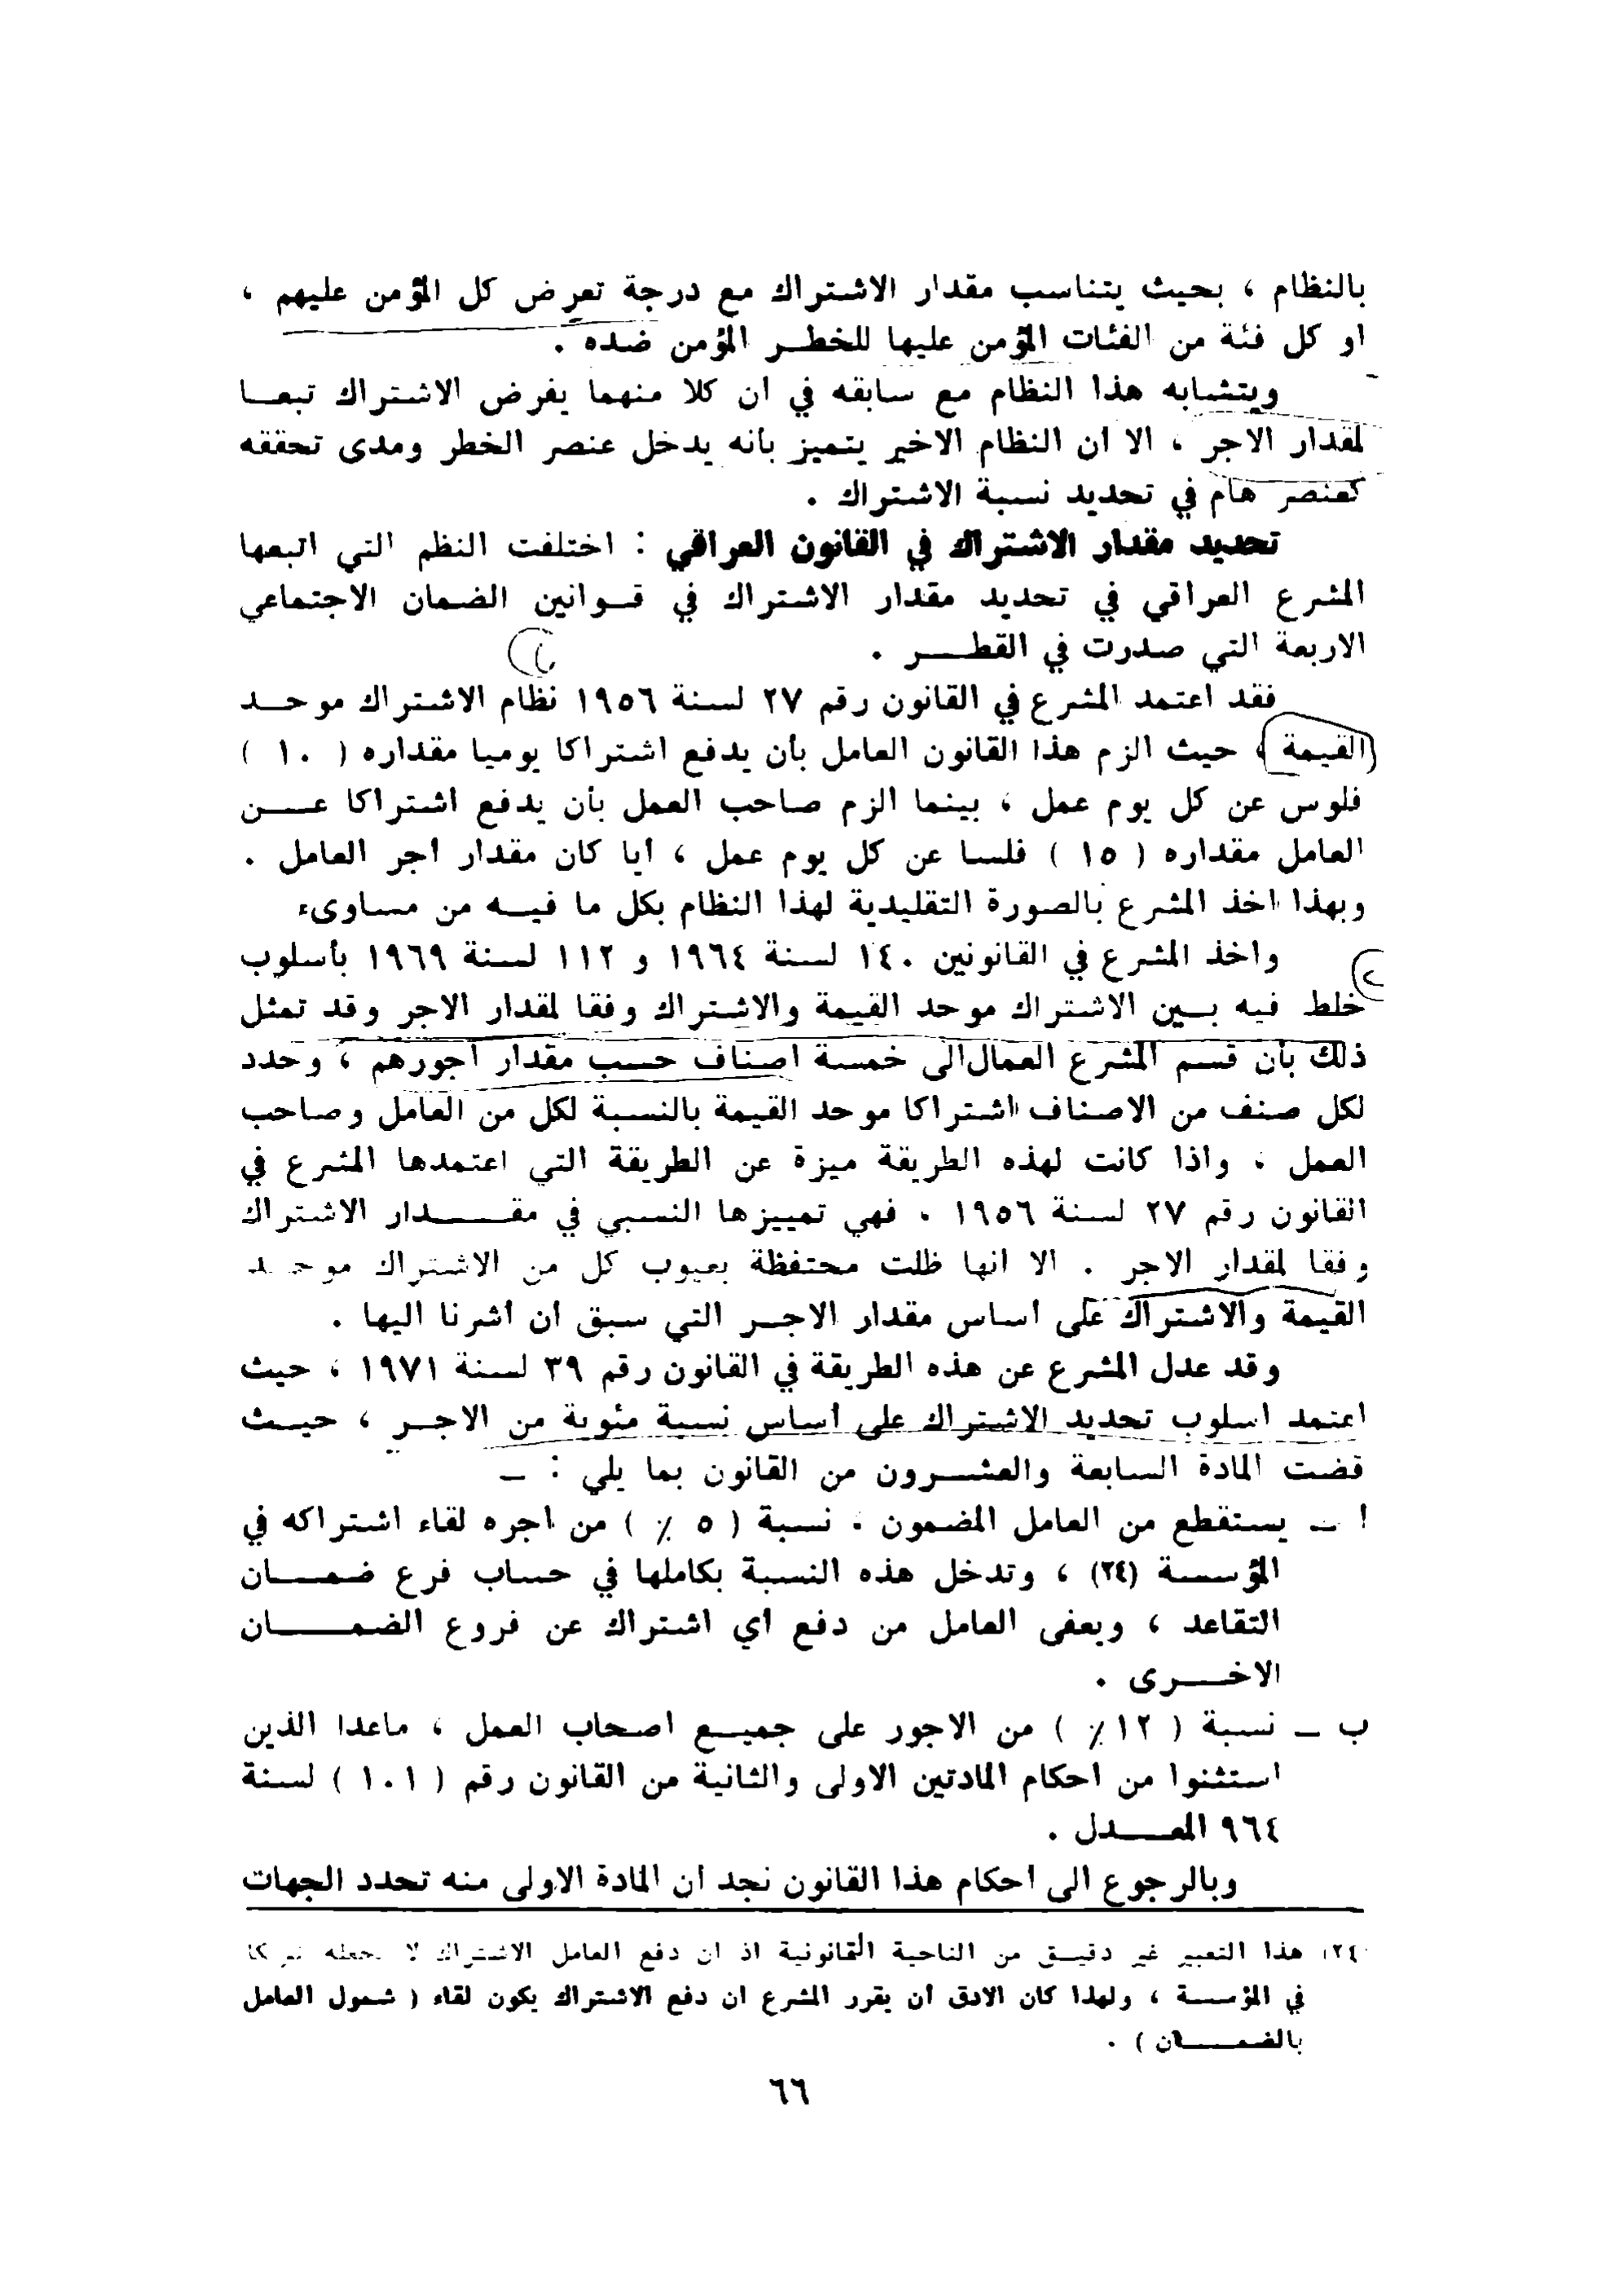 بالنظام ، بحيث يتناسب مقدار الاشتراك مع درجة تعرض كل المؤمن عليهم ،
او كل فئة من الفئات المؤمن عليها للخطر المؤمن ضده .
ويتشابه هذا النظام مع سابقه في ان كلا منهما يفرض الاشتراك تبعا
لمقدار الاجر ، الا ان النظام الاخير يتميز بأنه يدخل عنصر الخطر ومدى تحققه
كعنصر هام في تحديد نسبة الاشتراك .
تحديد مقدار الاشتراك في القانون العراقي : اختلفت النظم التي اتبعها
المشرع العراقي في تحديد مقدار الاشتراك في قوانين الضمان الاجتماعي
الاربعة التي صدرت في القطر .
فقد اعتمد المشرع في القانون رقم ٢٧ لسنة ١٩٥٦ نظام الاشتراك موحد
القيمة ، حيث الزم هذا القانون العامل بأن يدفع اشتراكا يوميا مقداره ( ١٠ )
فلوس عن كل يوم عمل ، بينما الزم صاحب العمل بأن يدفع اشتراكا عن
العامل مقداره ( ١٥ ) فلسا عن كل يوم عمل ، أيا كان مقدار أجر العامل .
وبهذا اخذ المشرع بالصورة التقليدية لهذا النظام بكل ما فيه من مساوىء
واخذ المشرع في القانونين ١٤٠ لسنة ١٩٦٤ و ١١٢ لسنة ١٩٦٩ بأسلوب
خلط فيه بين الاشتراك موحد القيمة والاشتراك وفقا لمقدار الاجر وقد تمثل
ذلك بأن قسم المشرع العمال الى خمسة اصناف حسب مقدار أجورهم ، وحدد
لكل صنف من الاصناف اشتراكا موحد القيمة بالنسبة لكل من العامل وصاحب
العمل . واذا كانت لهذه الطريقة ميزة عن الطريقة التي اعتمدها المشرع في
القانون رقم ٢٧ لسنة ١٩٥٦ . فهي تمييزها النسبي في مقدار الاشتراك
وفقا لمقدار الاجر . الا انها ظلت محتفظة بعيوب كل من الاشتراك موحد
القيمة والاشتراك على أساس مقدار الاجر التي سبق ان أشرنا اليها .
وقد عدل المشرع عن هذه الطريقة في القانون رقم ٣٩ لسنة ١٩٧١ ، حيث
اعتمد اسلوب تحديد الاشتراك على أساس نسبة مئوية من الاجر ، حيث
قضت المادة السابعة والعشرون من القانون بما يلي : ــ
أ ــ يستقطع من العامل المضمون . نسبة ( ٥ ٪ ) من اجره لقاء اشتراكه في
المؤسسة (٢٤) ، وتدخل هذه النسبة بكاملها في حساب فرع ضمان
التقاعد ، ويعفى العامل من دفع أي اشتراك عن فروع الضمان
الاخرى .
ب ــ نسبة ( ١٢٪ ) من الاجور على جميع اصحاب العمل ، ماعدا الذين
استثنوا من احكام المادتين الاولى والثانية من القانون رقم ( ١٠١ ) لسنة
٩٦٤ المعدل .
وبالرجوع الى احكام هذا القانون نجد ان المادة الاولى منه تحدد الجهات
(٢٤) هذا التعبير غير دقيق من الناحية القانونية اذ ان دفع العامل الاشتراك لا يجعله شريكا
في المؤسسة ، ولهذا كان الادق أن يقرر المشرع ان دفع الاشتراك يكون لقاء ( شمول العامل
بالضمان ) .
٦٦